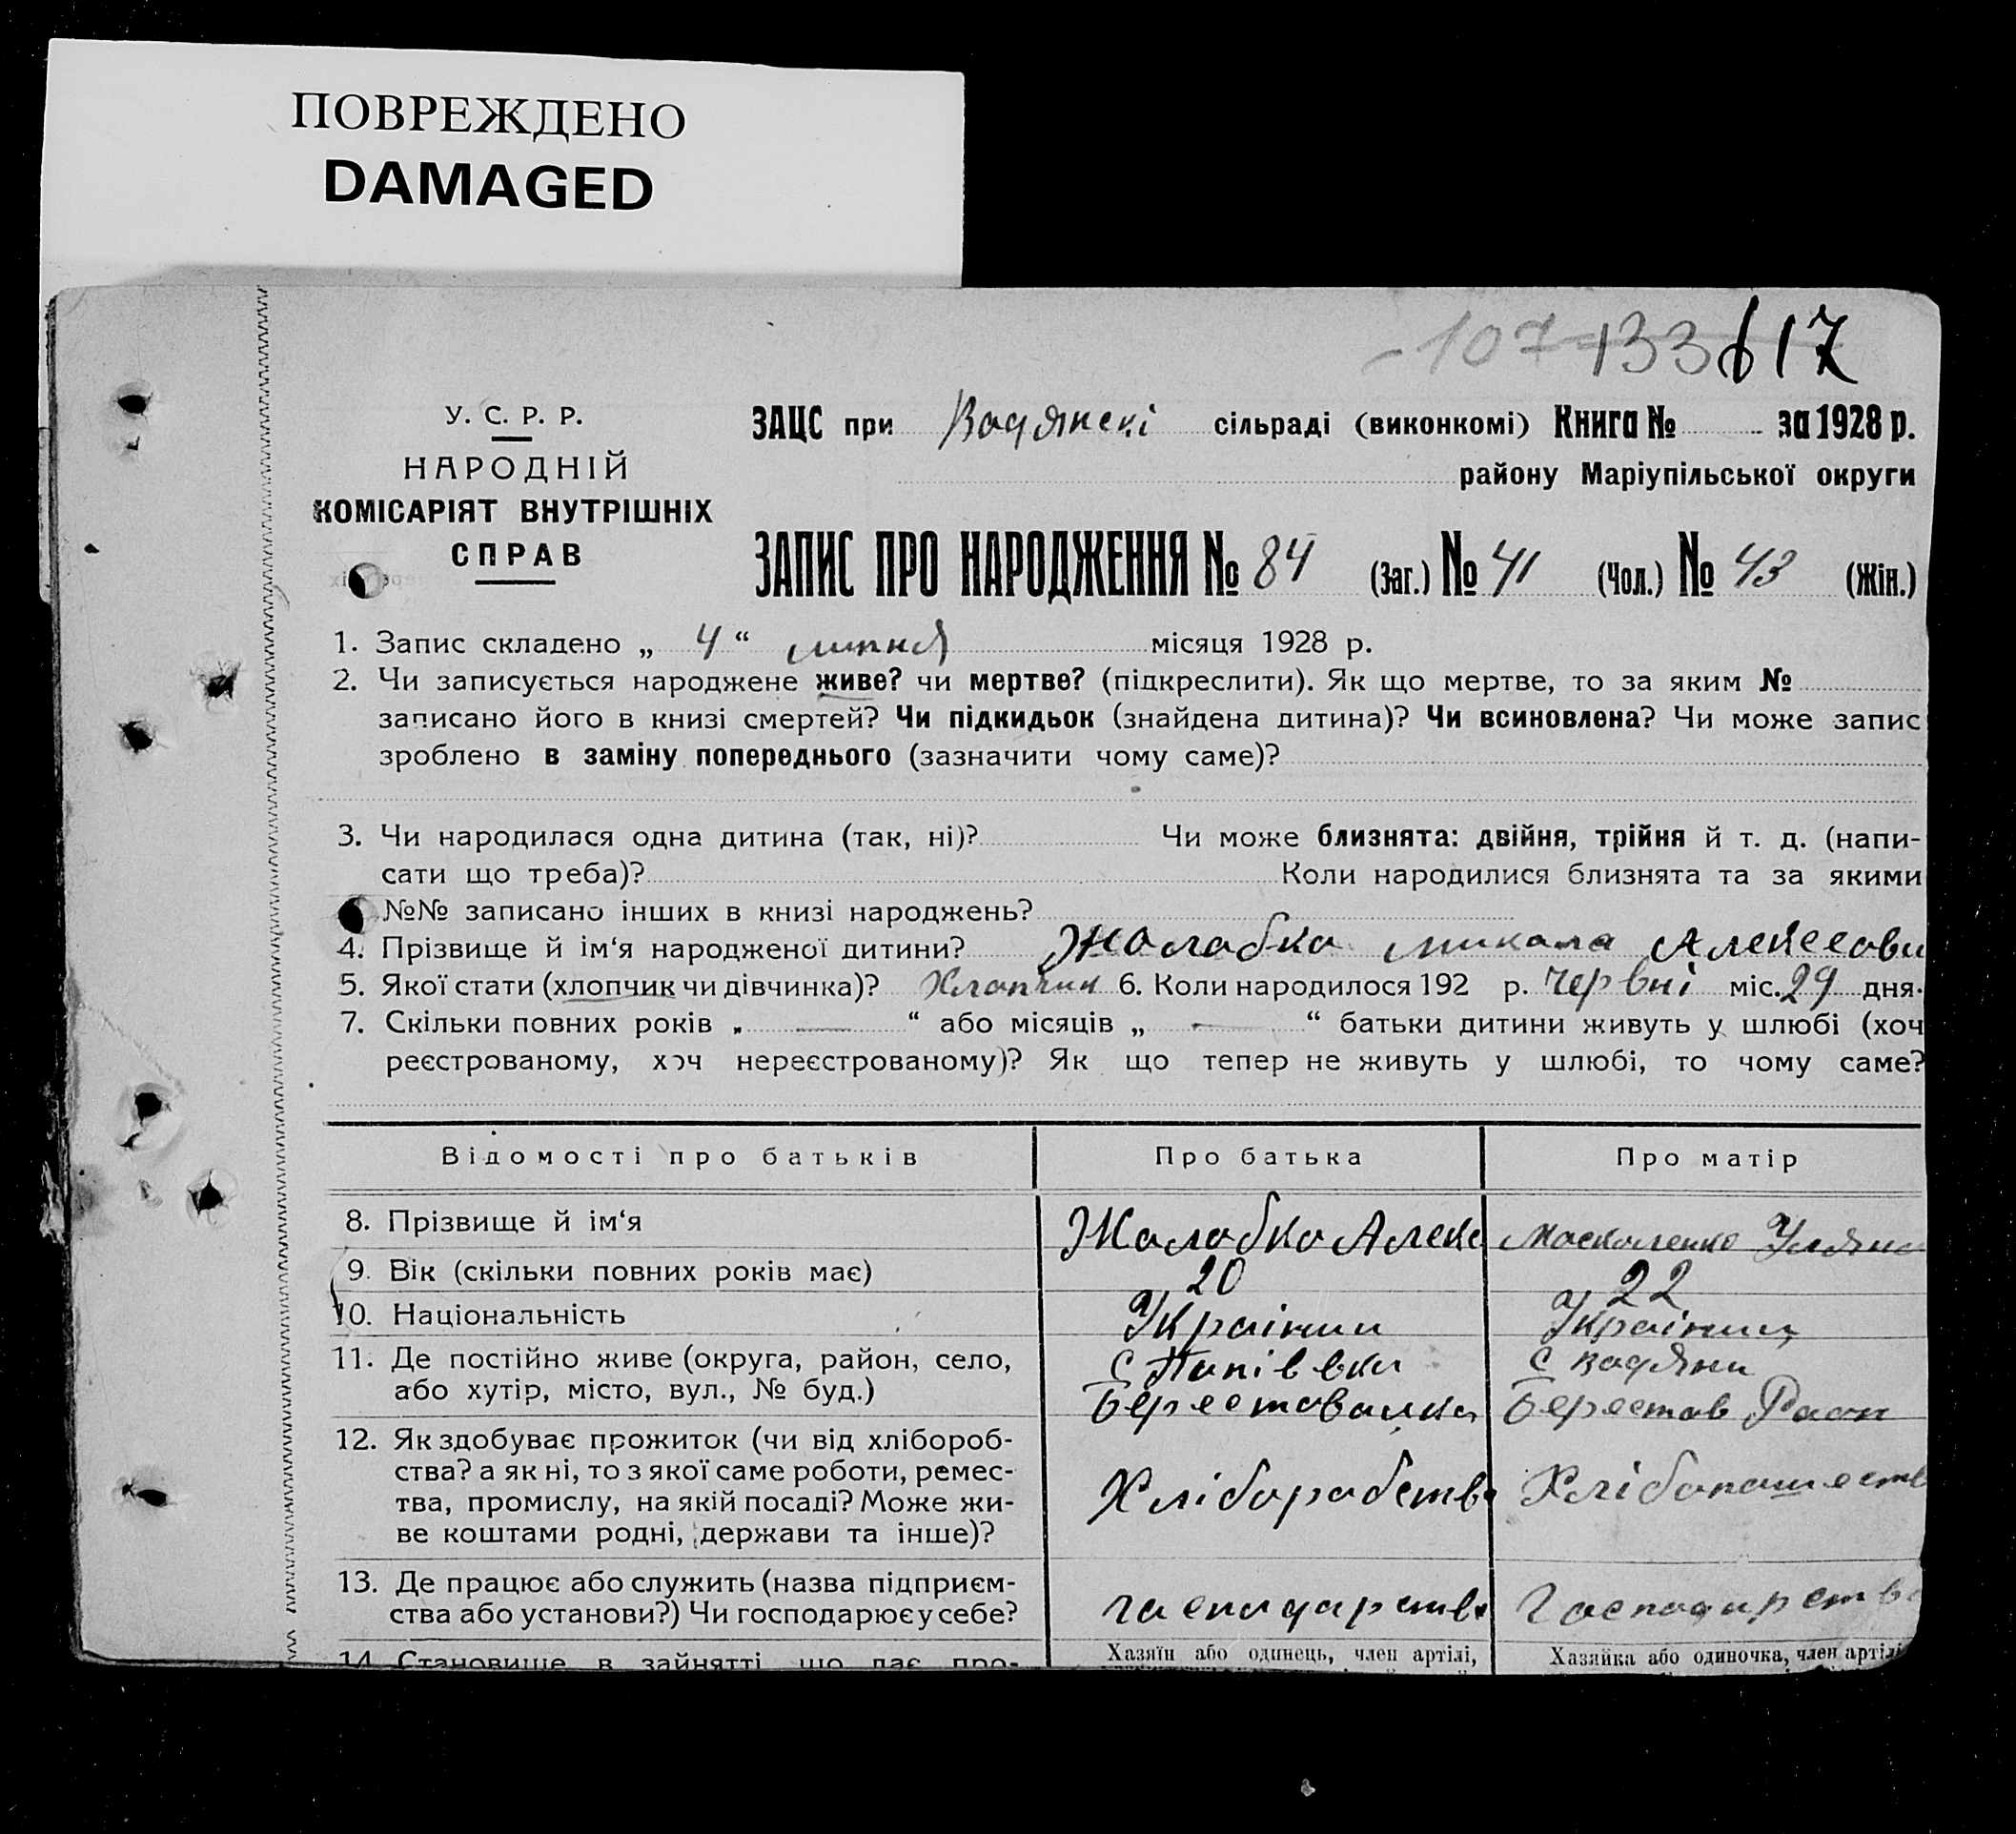 ПОВРЕЖДЕНО
DAMAGED
107 133 617
У. С. Р. Р.
НАРОДНІЙ
КОМІСАРІЯТ ВНУТРІШНІХ
СПРАВ
ЗАЦС при Водянскі сільраді (виконкомі) Книга № за 1928 р.
району Маріупільської округи
ЗАПИС ПРО НАРОДЖЕННЯ № 84 (Заг.) № 41 (Чол.) № 43 (Жін.)
1. Запис складено „ 4 “ липня місяця 1928 р.
2. Чи записується народжене живе? чи мертве? (підкреслити). Як що мертве, то за яким №
записано його в книзі смертей? Чи підкидьок (знайдена дитина)? Чи всиновлена? Чи може запис
зроблено в заміну попереднього (зазначити чому саме)?
3. Чи народилася одна дитина (так, ні)? Чи може близнята: двійня, трійня й т. д. (напи-
сати що треба)? Коли народилися близнята та за якими
№№ записано інших в книзі народжень?
4. Прізвище й ім‘я народженої дитини? Жолобко Микола Алексеови
5. Якої стати (хлопчик чи дівчинка)? Хлопчик 6. Коли народилося 192 р. Червні міс. 29 дня.
7. Скільки повних років „ — “ або місяців „ — “ батьки дитини живуть у шлюбі (хоч
реєстрованому, хоч нереєстрованому)? Як що тепер не живуть у шлюбі, то чому саме?
Відомості про батьків Про батька Про матір
8. Прізвище й ім‘я Жолобко Алекс Москаленко Уляна
9. Вік (скільки повних років має) 20 22
10. Національність Українці Українці
11. Де постійно живе (округа, район, село, с Попівки с Водяни
або хутір, місто, вул., № буд.) Берестовська Берестов Раон
12. Як здобуває прожиток (чи від хлібороб-
ства? а як ні, то з якої саме роботи, ремес-
тва, промислу, на якій посаді? Може жи-
ве коштами родні, держави та інше)? Хліборобство Хлібопашеств
13. Де працює або служить (назва підприєм-
ства або установи?) Чи господарює у себе? господарство Господарство
14. Становище в зайнятті, що дає про- Хазяїн або одинець, член артілі, Хазяйка або одиночка, член артілі